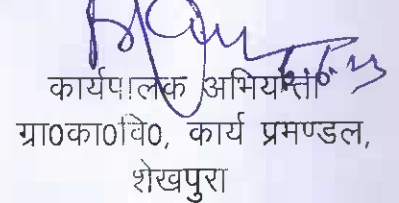 कार्यपालक अभियन्ता
ग्रा0का0वि0, कार्य प्रमण्डल,
शेखपुरा